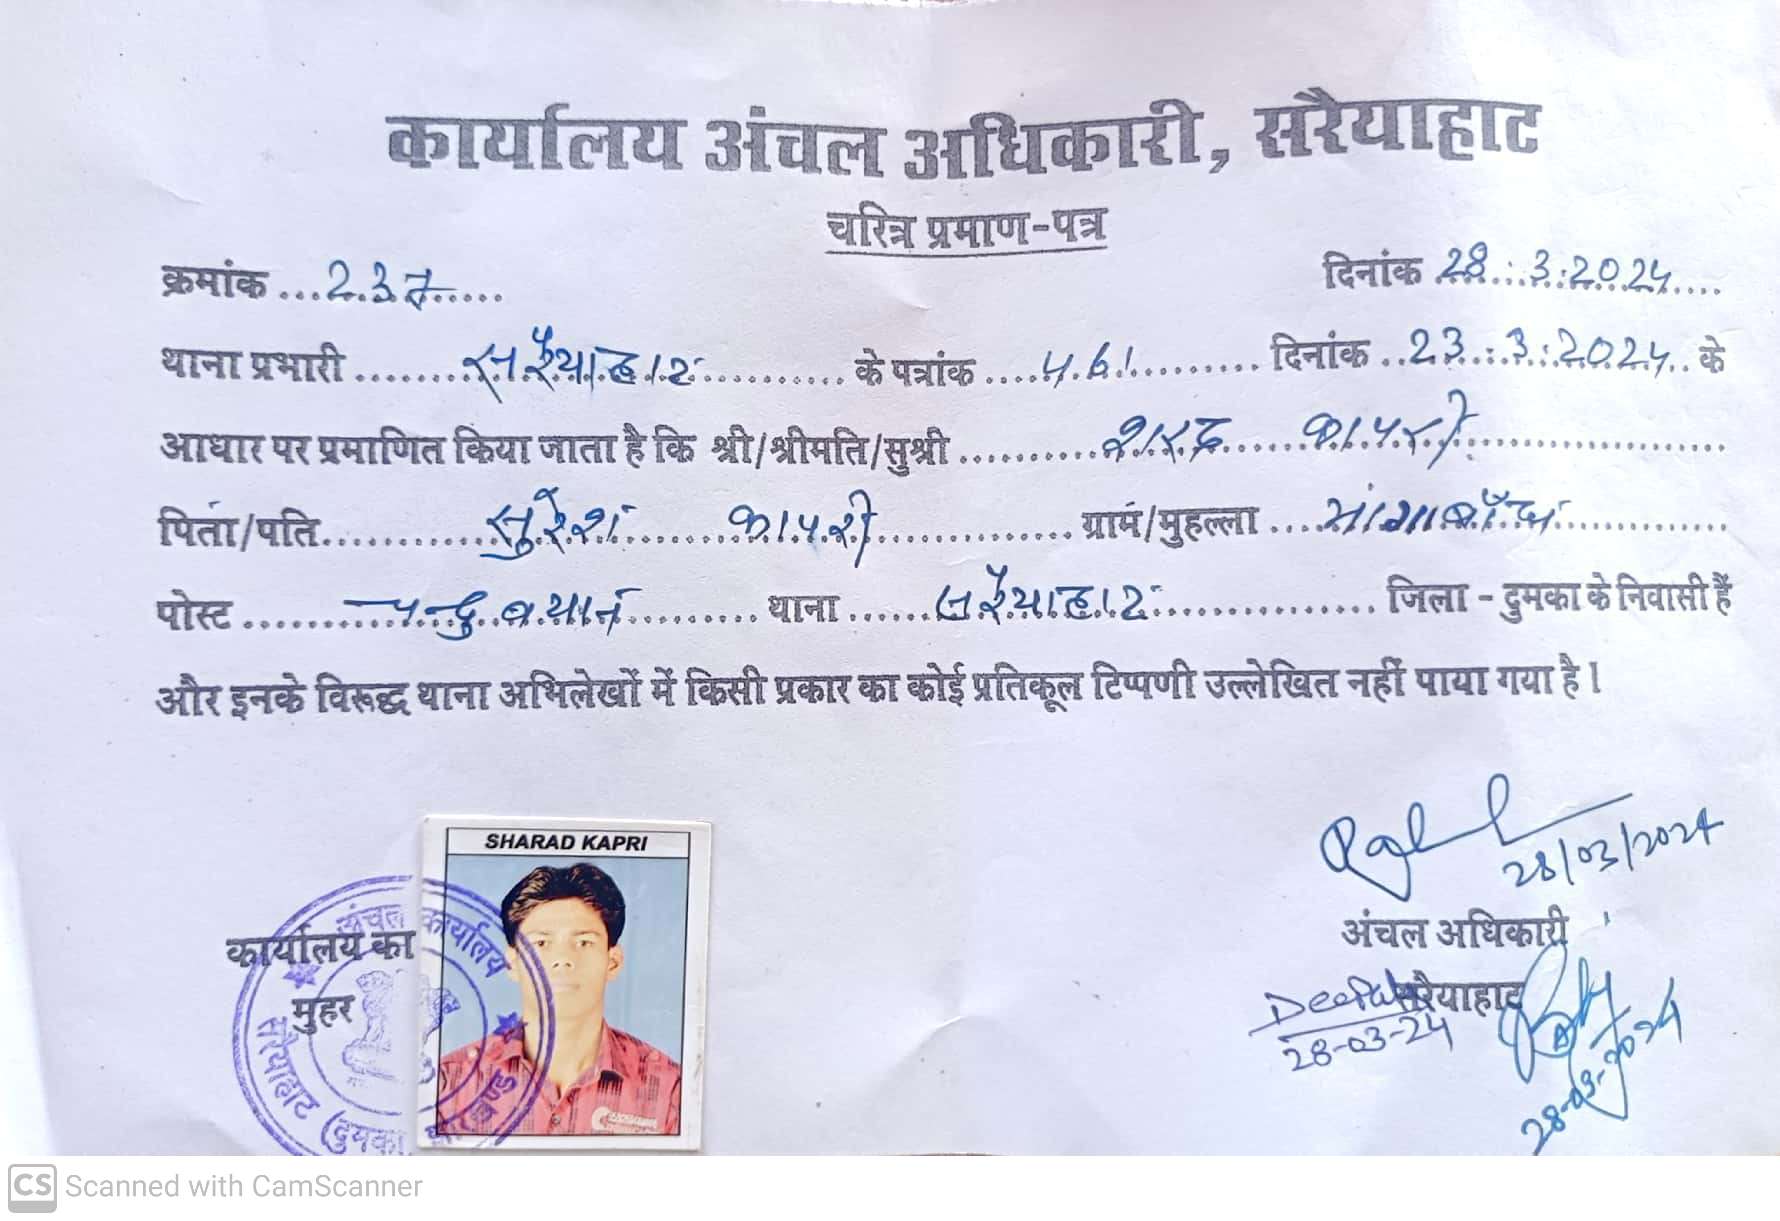 कार्यालय अंचल अधिकारी, सरैयाहाट
चरित्र प्रमाण-पत्र
क्रमांक ...237...... दिनांक 28.:.3.:2024....
थाना प्रभारी ........सरैयाहाट........... के पत्रांक ....461......... दिनांक ..23.:.3.:2024.. के
आधार पर प्रमाणित किया जाता है कि श्री/श्रीमति/सुश्री ..........शरद......कापरी....................
पिता/पति............सुरेश........कापरी............... ग्राम/मुहल्ला ....................
पोस्ट .................... थाना ......सरैयाहाट............... जिला - दुमका के निवासी हैं
और इनके विरूद्ध थाना अभिलेखों में किसी प्रकार का कोई प्रतिकूल टिप्पणी उल्लेखित नहीं पाया गया है।
SHARAD KAPRI
28/03/2024
अंचल कार्यालय
सरैयाहाट (दुमका) झारखण्ड
कार्यालय का
मुहर
अंचल अधिकारी
सरैयाहाट
28-03-24
28-03-2024
CS Scanned with CamScanner